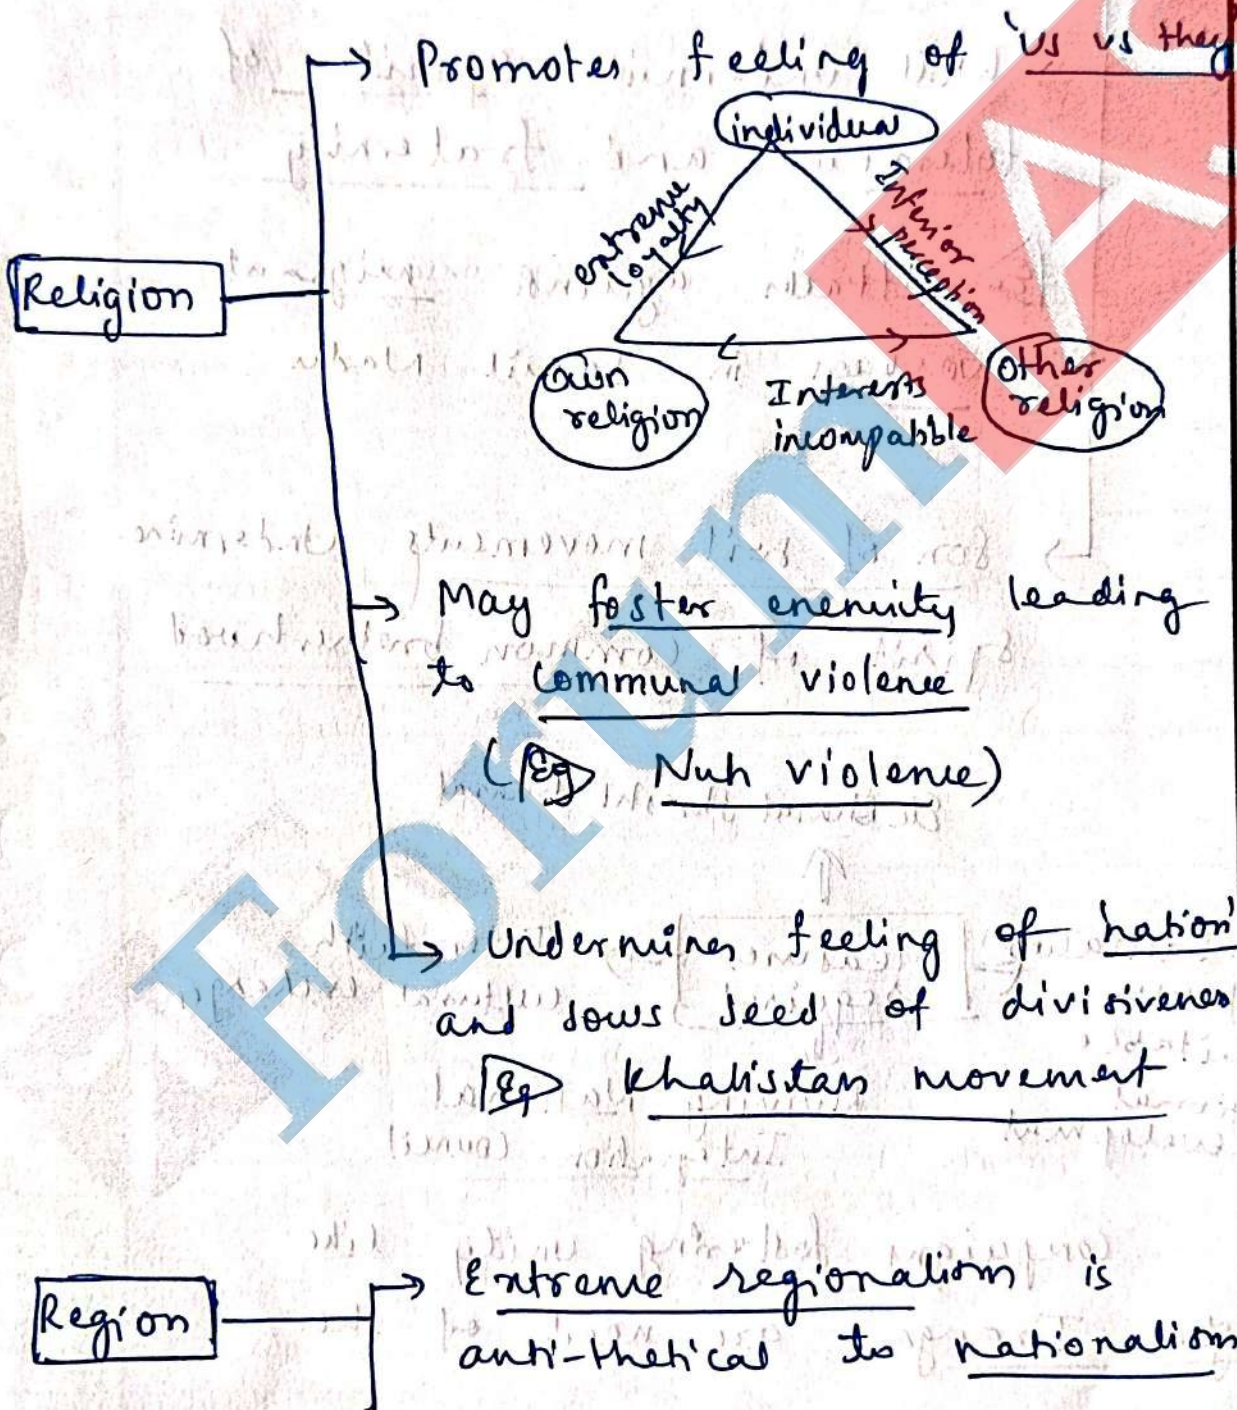 Promotes feeling of 'us vs they
individual
extreme loyalty
Inferior perception
Religion
own religion
Interests incompatible
other religion
May foster enemity leading
to communal violence
(Eg Nuh violence)
Undermines feeling of 'nation'
and sows seed of divisiveness
Eg Khalistan movement
Region
Extreme regionalism is
anti-thetical to nationalism
Forum IAS